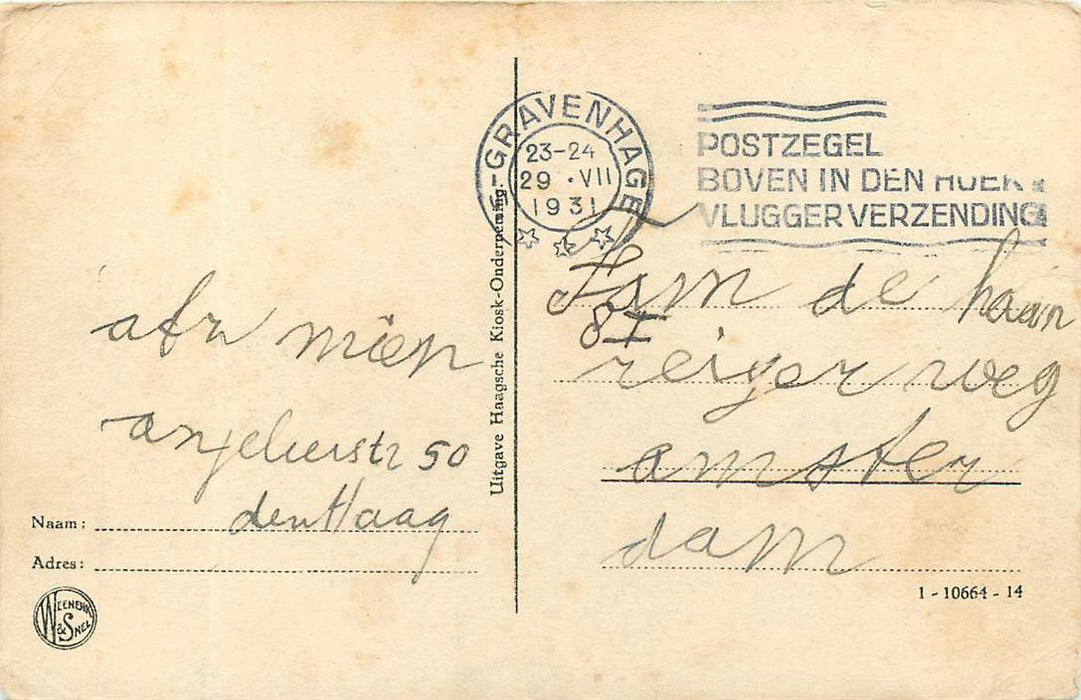 's-GRAVENHAGE
23-24
29 · VII
1931
POSTZEGEL
BOVEN IN DEN HOEK
VLUGGER VERZENDING
afz mien
anjelierstr 50
den Haag
Naam:
Adres:
WEENENK & SNEL
Uitgave Haagsche Kiosk-Onderneming.
Fam de haan
81
reiger weg
amster
dam
1 - 10664 - 14